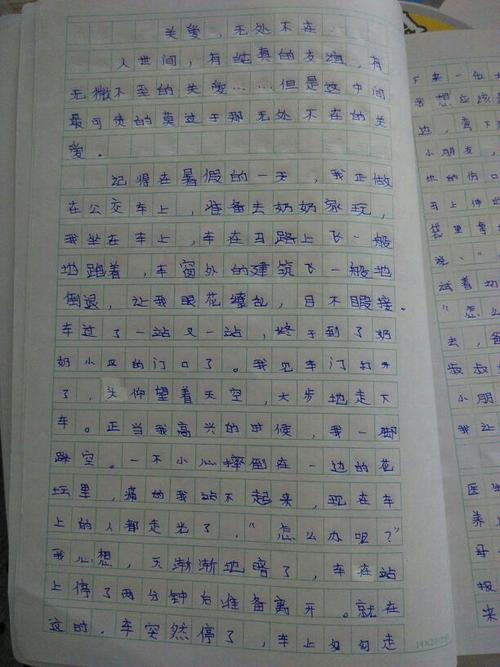 关爱，无处不在
人世间，有纯真的友谊，有
无微不至的关爱……但是这中间
最可贵的莫过于那无处不在的关
爱。
记得在暑假的一天，我正做
在公交车上，准备去奶奶家玩，
我坐在车上，车在马路上飞一般
地跑着，车窗外的建筑飞一般地
倒退，让我眼花缭乱，目不暇接。
车过了一站又一站，终于到了奶
奶小区的门口了。我见车门打开
了，头仰望着天空，大步地走下
车。正当我高兴的时候，我一脚
踩空。一不小心摔倒在一边的花
坛里，痛的我站不起来，现在车
上的人都走光了，“怎么办呢？”
我心想，天渐渐地暗了，车在站
上停了两分钟后准备离开。就在
这时，车突然停了，车上匆匆走
下来一位
边，弯下
小朋友，
她的伤口
马上伸
袋里拿
试着
“怎么
去，爸
叔叔
小朋
我让
医生
养
母
报
来